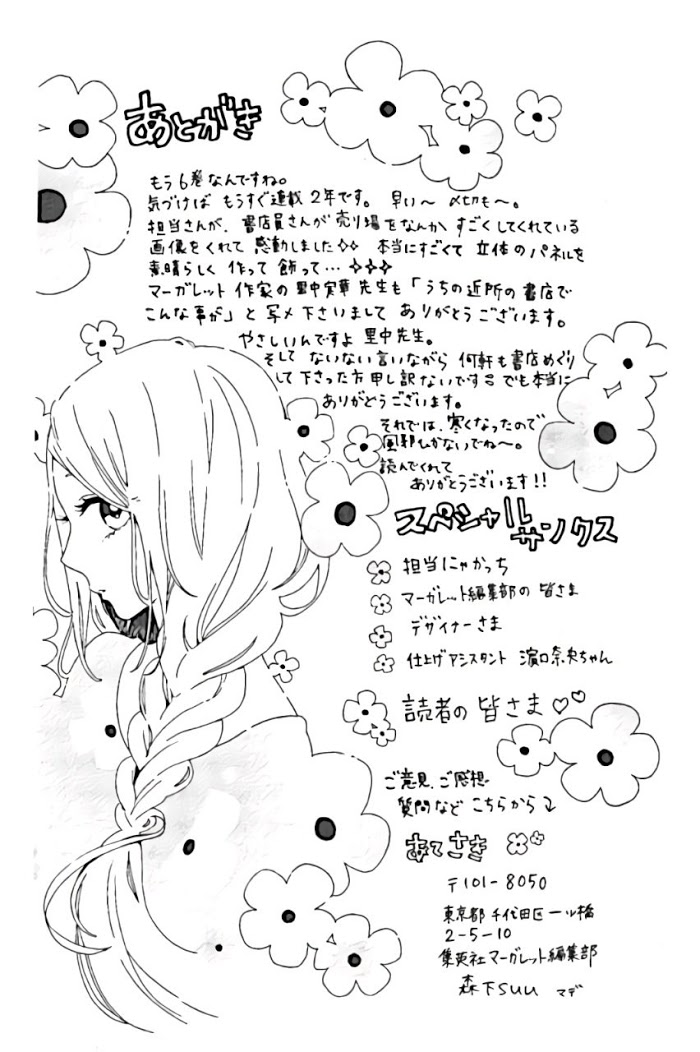 あとがき
もう6巻なんですね。
気づけば もうすぐ連載2年です。 早い〜 〆切も〜。
担当さんが、書店員さんが売り場をなんか すごくしてくれている
画像をくれて 感動しました✧✧ 本当にすごくて 立体のパネルを
素晴らしく 作って 飾って… ✧✧✧
マーガレット 作家の 里中実華 先生も「うちの近所の書店で
こんな事が」と 写メ下さいまして ありがとうございます。
やさしいんですよ 里中先生。
そして ないない言いながら 何軒も書店めぐり
して下さった方申し訳ないです でも本当に
ありがとうございます。
それでは、寒くなったので
風邪ひかないでね〜。
読んでくれて
ありがとうございます!!
スペシャル
サンクス
担当にゃかっち
マーガレット編集部の 皆さま
デザイナーさま
仕上げアシスタント 濱口奈央ちゃん
読者の 皆さま♡♡
ご意見、ご感想
質問など こちらから
あてさき
〒101-8050
東京都 千代田区一ツ橋
2-5-10
集英社マーガレット編集部
森下suu マデ